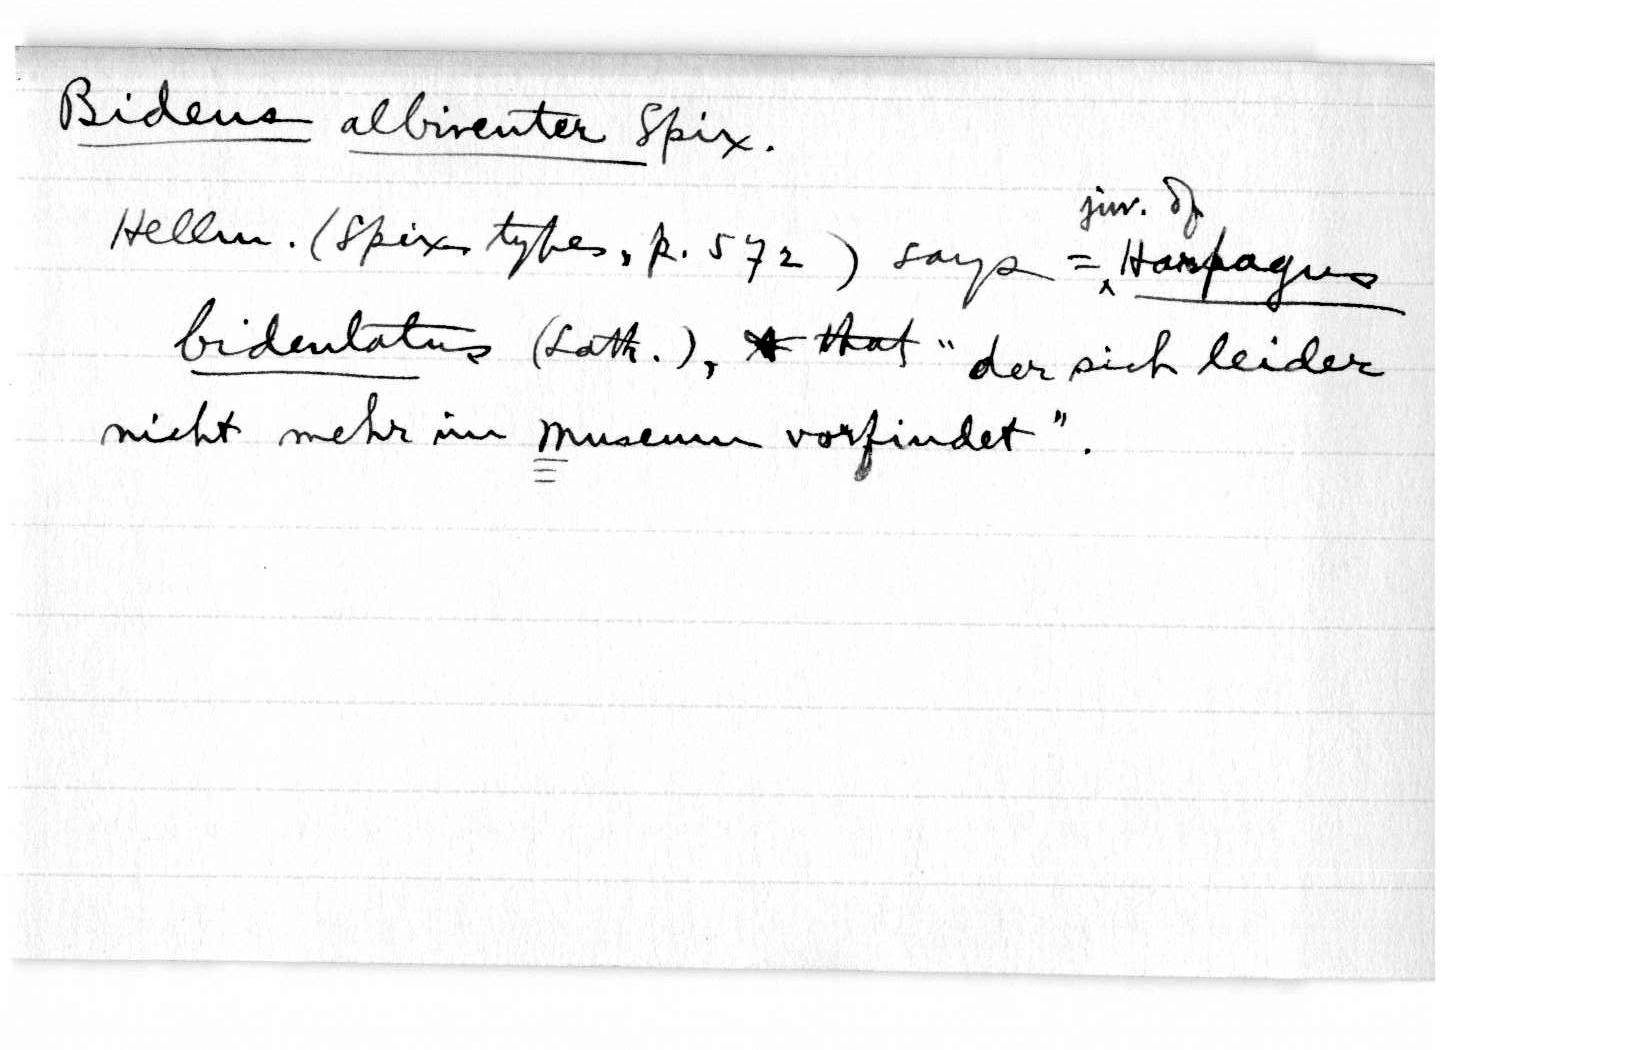 Bidens albiventer Spix.
juv. of
Hellm. (Spix types, p. 572) says = ‸ Harpagus
bidentatus (Lath.), that "der sich leider
nicht mehr im Museum vorfindet".